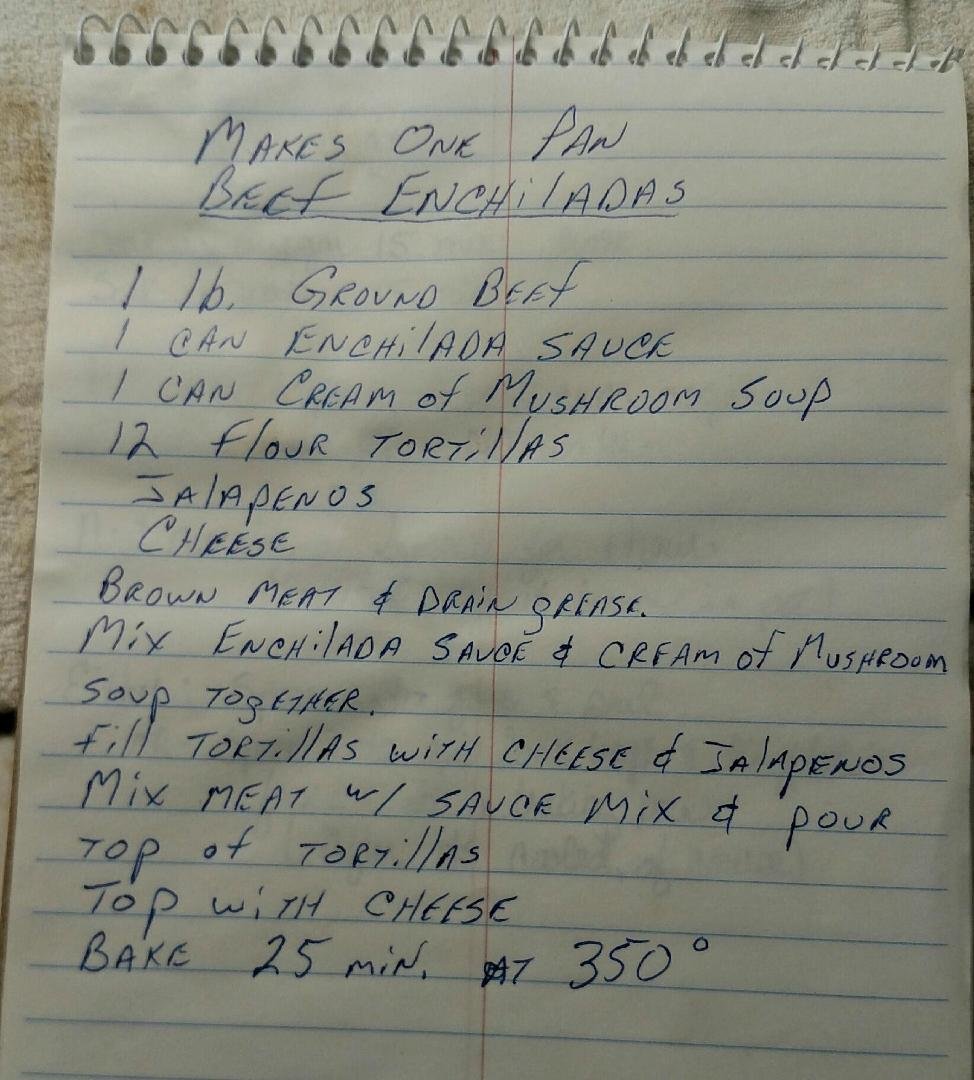 MAKES ONE PAN
BEEF ENCHILADAS
1 lb. GROUND BEEF
1 CAN ENCHILADA SAUCE
1 CAN CREAM of MUSHROOM SOUP
12 FlOUR TORTILLAS
JALAPENOS
CHEESE
BROWN MEAT & DRAIN GREASE.
MIX ENCHILADA SAUCE & CREAM of MUSHROOM
SOUP TOGETHER.
Fill TORTILLAS WITH CHEESE & JALAPENOS
MIX MEAT W/ SAUCE MIX & POUR
TOP of TORTILLAS
TOP WITH CHEESE
BAKE 25 MIN. AT 350°